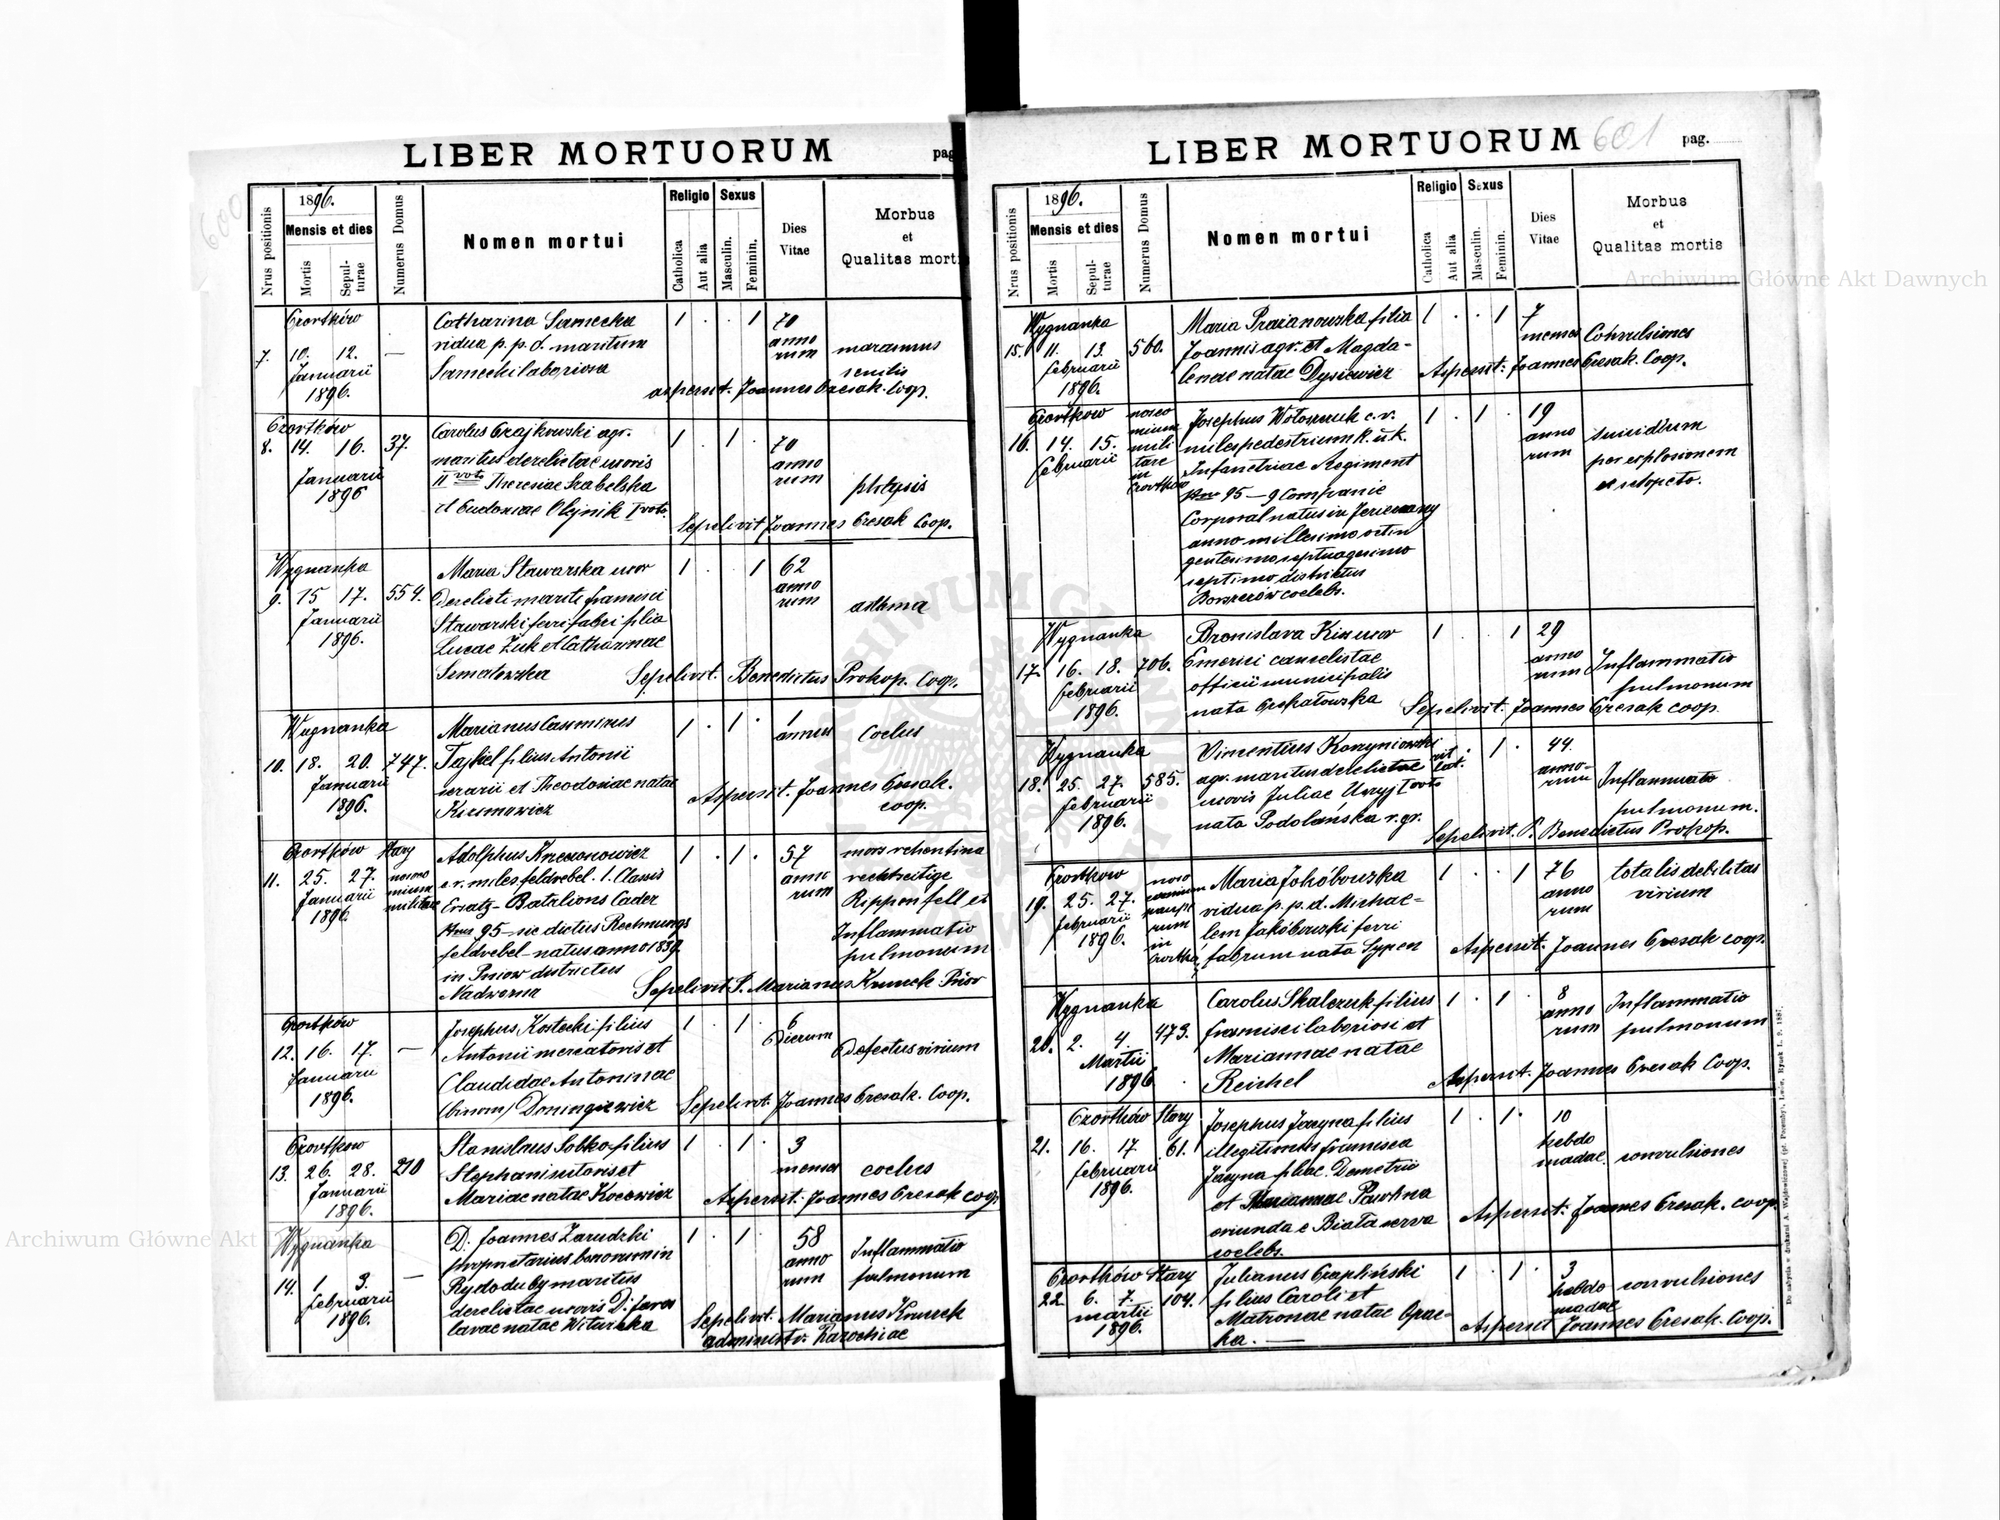 LIBER MORTUORUM
pag
Nrus positionis
1896.
Mensis et dies
Mortis
Sepul-
turae
Numerus Domus
Nomen mortui
Religio
Catholica
Aut alia
Sexus
Masculin.
Feminin.
Dies
Vitae
Morbus
et
Qualitas morti
Czortków
7. 10. 12. —
Januarii
1896.
Catharina Samecka
vidua p. p. d. maritum
Samecki laboriosa
1 . . 1
70
anno
rum
marasmus
senilis
aspersit. Joannes Cresak. Coop.
Czortków
8. 14. 16. 37.
Januarii
1896
Carolus Czajkowski agr.
maritus derelictae uxoris
II voto Theresiae Skabelska
et Eudoxiae Olejnik I voto.
1 . 1 .
70
anno
rum
phtysis
Sepelivit Joannes Cresak Coop.
Wygnanka
9. 15 17. 559.
Januarii
1896.
Maria Stawarska uxor
derelicti mariti francisci
Stawarski ferri fabri filia
Lucae Żuk et Catharinae
1 . . 1
62
anno
rum
asthma
Sepelivit. Benedictus Prokop. Coop.
Wygnanka
10. 18. 20. 747.
Januarii
1896.
Marianus Casimirus
filius Antonii
et Theodoziae natae
1 . 1 .
1
annus
Coelus
Aspersit. Joannes Cresak.
coop.
Czortków Stary
11. 25. 27.
Januarii
1896
noso
mium
militare
Adolphus
c. r. miles feldvebel. 1. Classis
Ersatz - Batalions Cader
Nro 95 - sic dictus Rechnungs
feldvebel - natus anno 1839.
in Pniow districtus
Nadworna
1 . 1 .
57
anno
rum
mors repentina
rechtseitige
Rippenfell et
Inflammatio
pulmonum
Sepelivit P. Marianus Knurek Prior
Czortków
12. 16. 17. —
Januarii
1896.
Josephus Kostecki filius
Antonii mercatoris et
Claudidae Antoninae
(binom) Domingiewicz
1 . 1 .
6
Dierum
Defectus virium
Sepelivit. Joannes Cresak. Coop.
Czortków
13. 26. 28. 210
Januarii
1896.
Stanislaus Sobko filius
Stephani sutoris et
Mariae natae Kocowicz
1 . 1 .
3
menses
coelus
Aspersit. Joannes Cresak coop.
Wygnanka
14. 1 3. —
februarii
1896.
D. Joannes Zarudzki
proprietarius bonorum in
Rydoduby maritus
derelictae uxoris D. Jaros
lavae natae Witwicka
1 . 1
58
anno
rum
Inflammatio
pulmonum
Sepelivit. Marianus Knurek
administr. Parochiae
LIBER MORTUORUM 601
pag.
Nrus positionis
1896.
Mensis et dies
Mortis
Sepul-
turae
Numerus Domus
Nomen mortui
Religio
Catholica
Aut alia
Sexus
Masculin.
Feminin.
Dies
Vitae
Morbus
et
Qualitas mortis
Wygnanka
15. 11. 13. 560.
februarii
1896.
Maria Prazanowska filia
Joannis agr. et Magda-
lenae natae Dysiewicz
1 . . 1
7
menses
Cohvulsiones
Aspersit: Joannes Cresak. Coop.
Czortkow
16. 14. 15.
februarii
noso
mium
mili
tare
in
Czortkow
Josephus Wołoszczuk c. r.
miles pedestrium k. u. k.
Infanteriae Regiment
Nro 95 — 9 Companie
Corporal natus in Jezierzany
anno millesimo octin
gentesimo septuagesimo
septimo districtus
Borszczów coelebs.
1 . 1 .
19
anno
rum
suicidium
per explosionem
e sclopeto.
Wygnanka
17. 16. 18. 706.
februarii
1896.
Bronislava Kisz uxor
Emerici cancelistae
officii municipalis
nata
1 . . 1
29
anno
rum
Inflammatio
pulmonum
Sepelivit. Joannes Cresak coop.
Wygnanka
18. 25. 27. 585.
februarii
1896.
Vincentius
agr. maritus derelictae
uxoris Juliae I voto
nata Podolańska r. gr.
rit
lat.
. 1 .
44.
anno-
rum
Inflammatio
pulmonum.
Sepelivit. P. Benedictus Prokop.
Czortkow
19. 25. 27.
februarii
1896.
noso
comium
paupe
rum
in
Czortków
Maria Jakóbowska
vidua p. p. d. Michae-
lem Jakóbowski ferri
fabrum nata Sypen
1 . . 1
76
anno
rum
totalis debilitas
virium
Aspersit. Joannes Cresak coop.
Wygnanka
20. 2. 4. 473.
Martii
1896
Carolus Skalczuk filius
francisci laboriosi et
Mariannae natae
Reichel
1 . 1 .
8
anno
rum
Inflammatio
pulmonum
Aspersit. Joannes Cresak Coop.
Czortków Stary
21. 16. 17 61.
februarii
1896.
Josephus Jaryna filius
illegitimus francisca
Jaryna filiae. Demetrii
et Mariannae Pawlina
oriunda e Biała serva
coelebs.
1 . 1 .
10
hebdo
madae.
convulsiones
Aspersit: Joannes Cresak. coop.
Czortków Stary
22. 6. 7. 104.
martii
1896.
Julianus Czapliński
filius Caroli et
Matronae natae Grac-
ka. —
1 . 1 .
3
hebdo
madae
convulsiones
Aspersit Joannes Cresak. Coop.
Archiwum Główne Akt Dawnych
Archiwum Główne Akt Dawnych